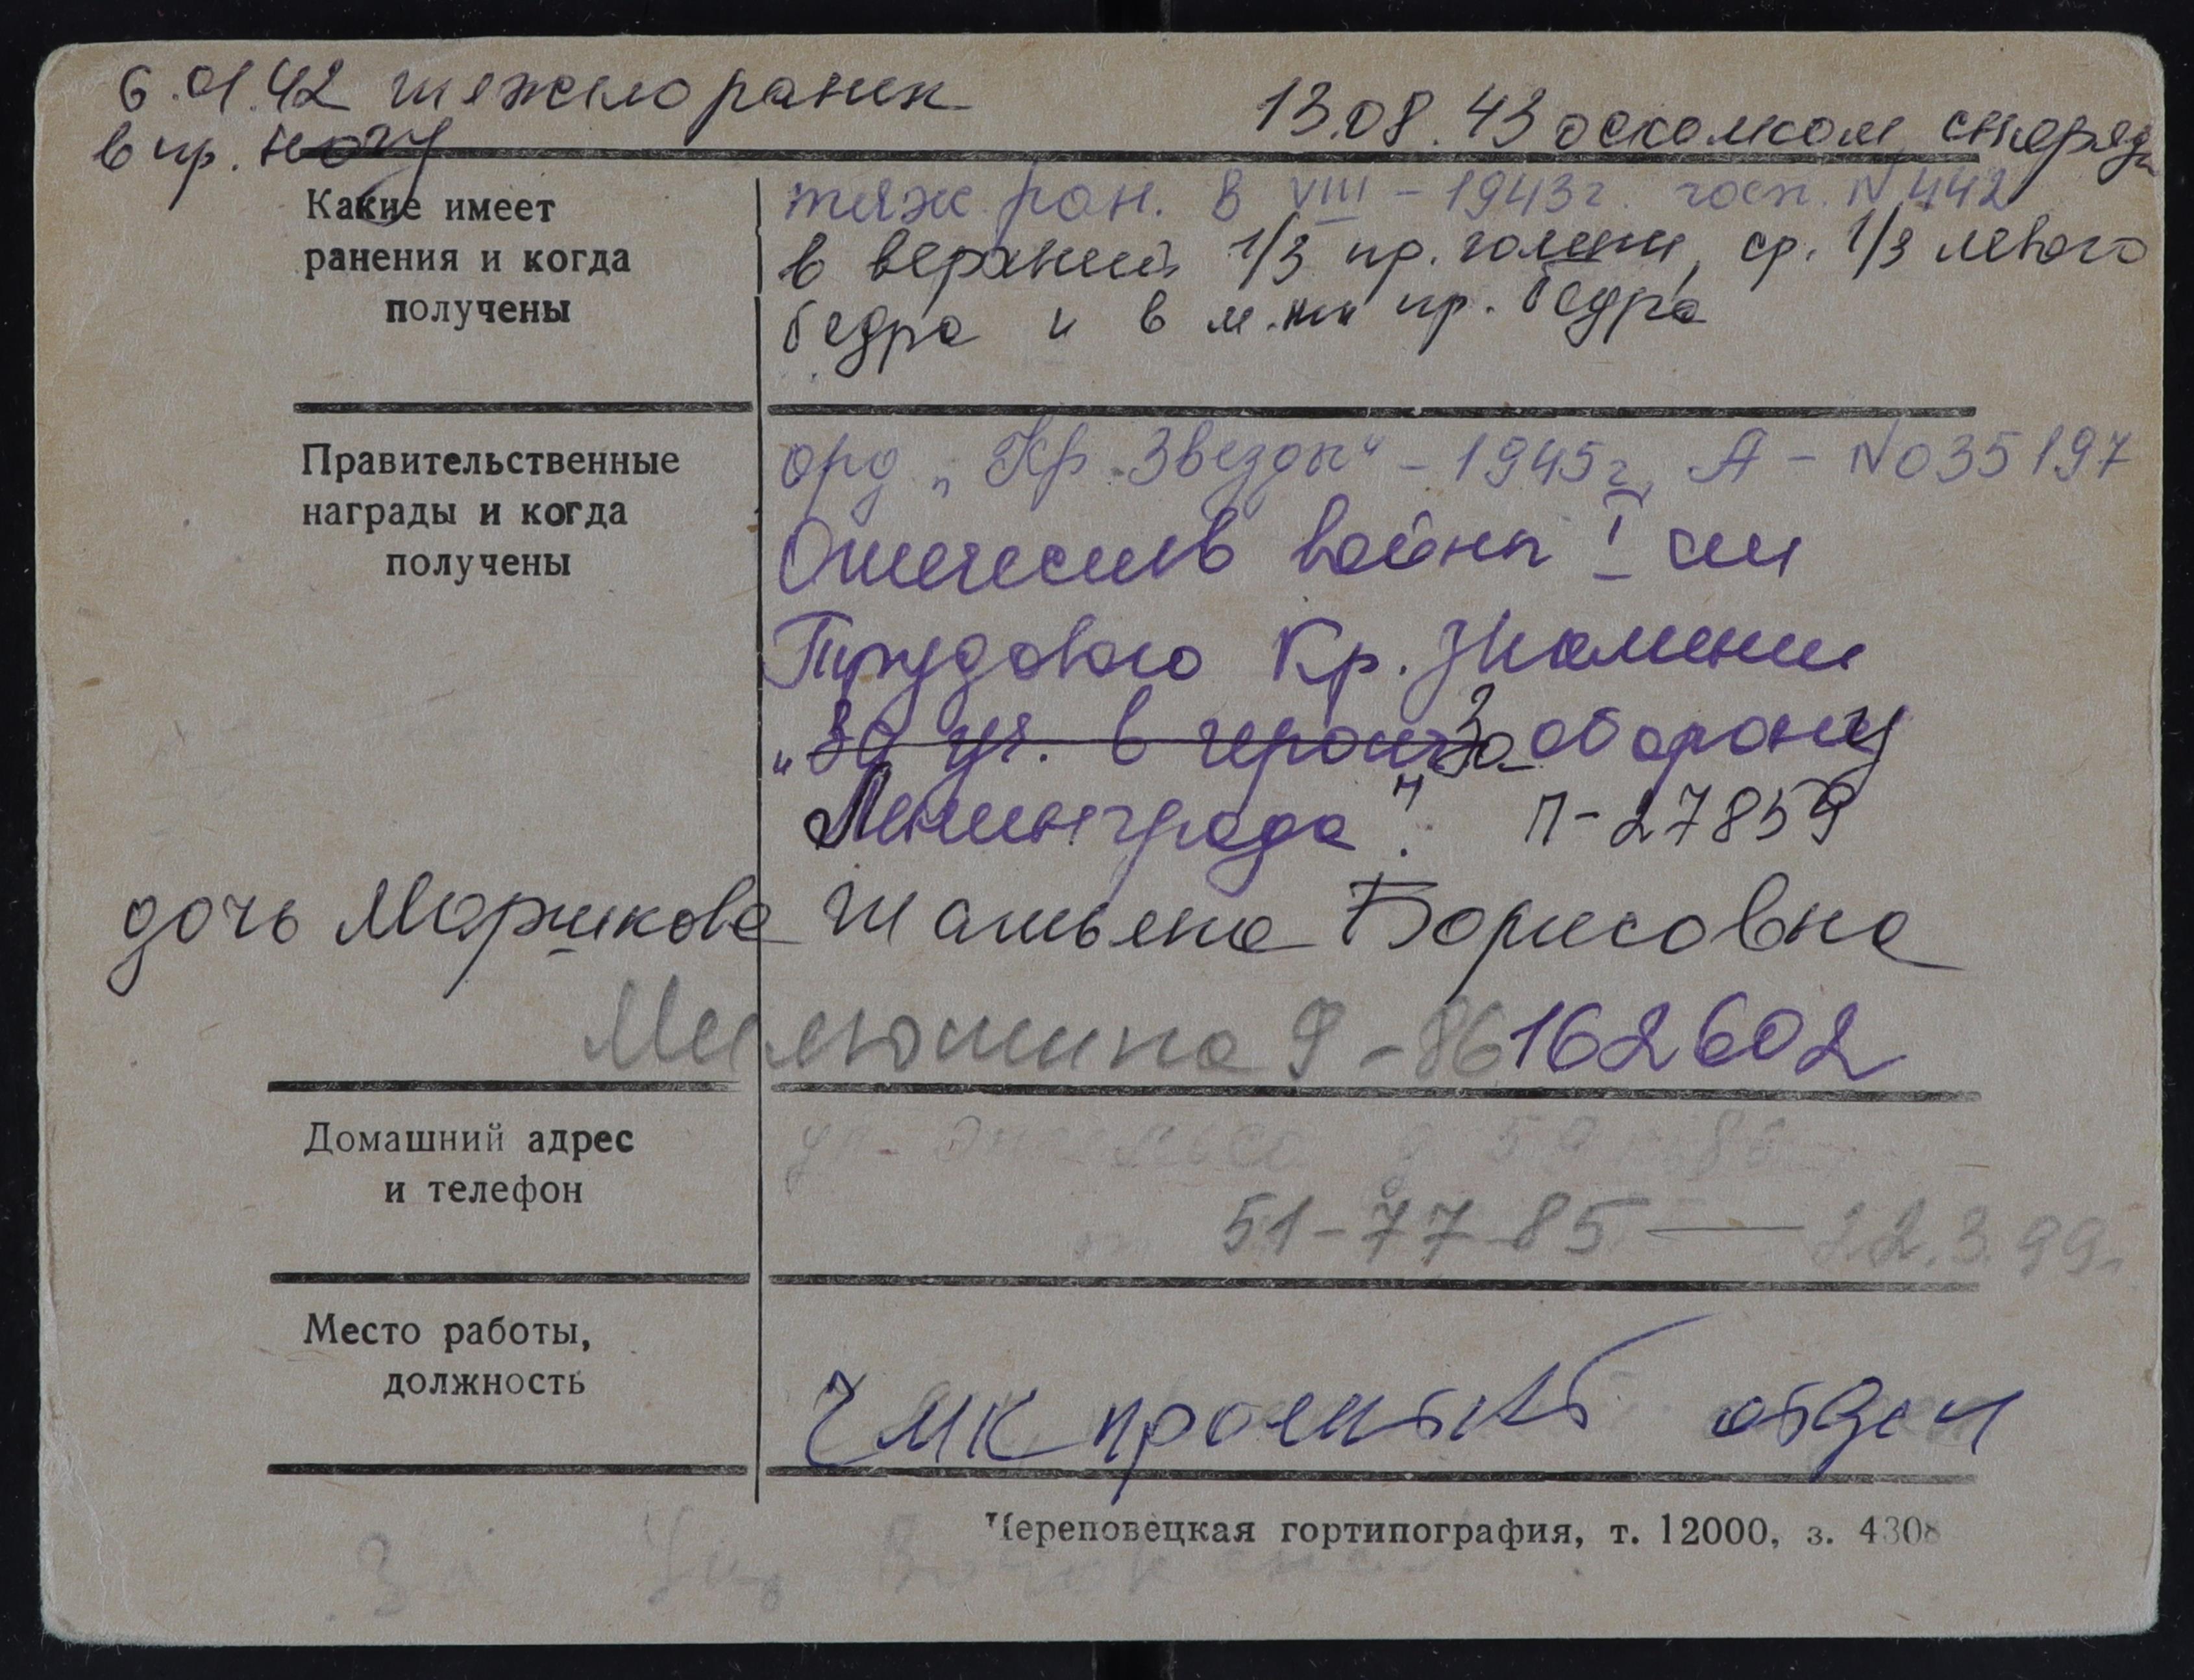 6.01.42 тяжело ранен
в пр. ногу
13.08.43 осколком снаряда
Какие имеет
ранения и когда
получены
тяж. ран. в VIII – 1943 г. госп. N 442
в верхней 1/3 пр. голени, ср. 1/3 левого
бедра и в м.тк пр. бедра
Правительственные
награды и когда
получены
орд. „Кр. Звезды“ – 1945 г. А – N 035197
Отечеств войны I ст
Трудового Кр. Знамени
„За уч. в героич За оборону
Ленинграда". П-27859
дочь Моршкова Татьяна Борисовна
Милютина 9 – 86 162602
Домашний адрес
и телефон
ул. д 59
51-77-85 — 22.3.99г
Место работы,
должность
ЧМК отдел
Череповецкая гортипография, т. 12000, з. 4308
За